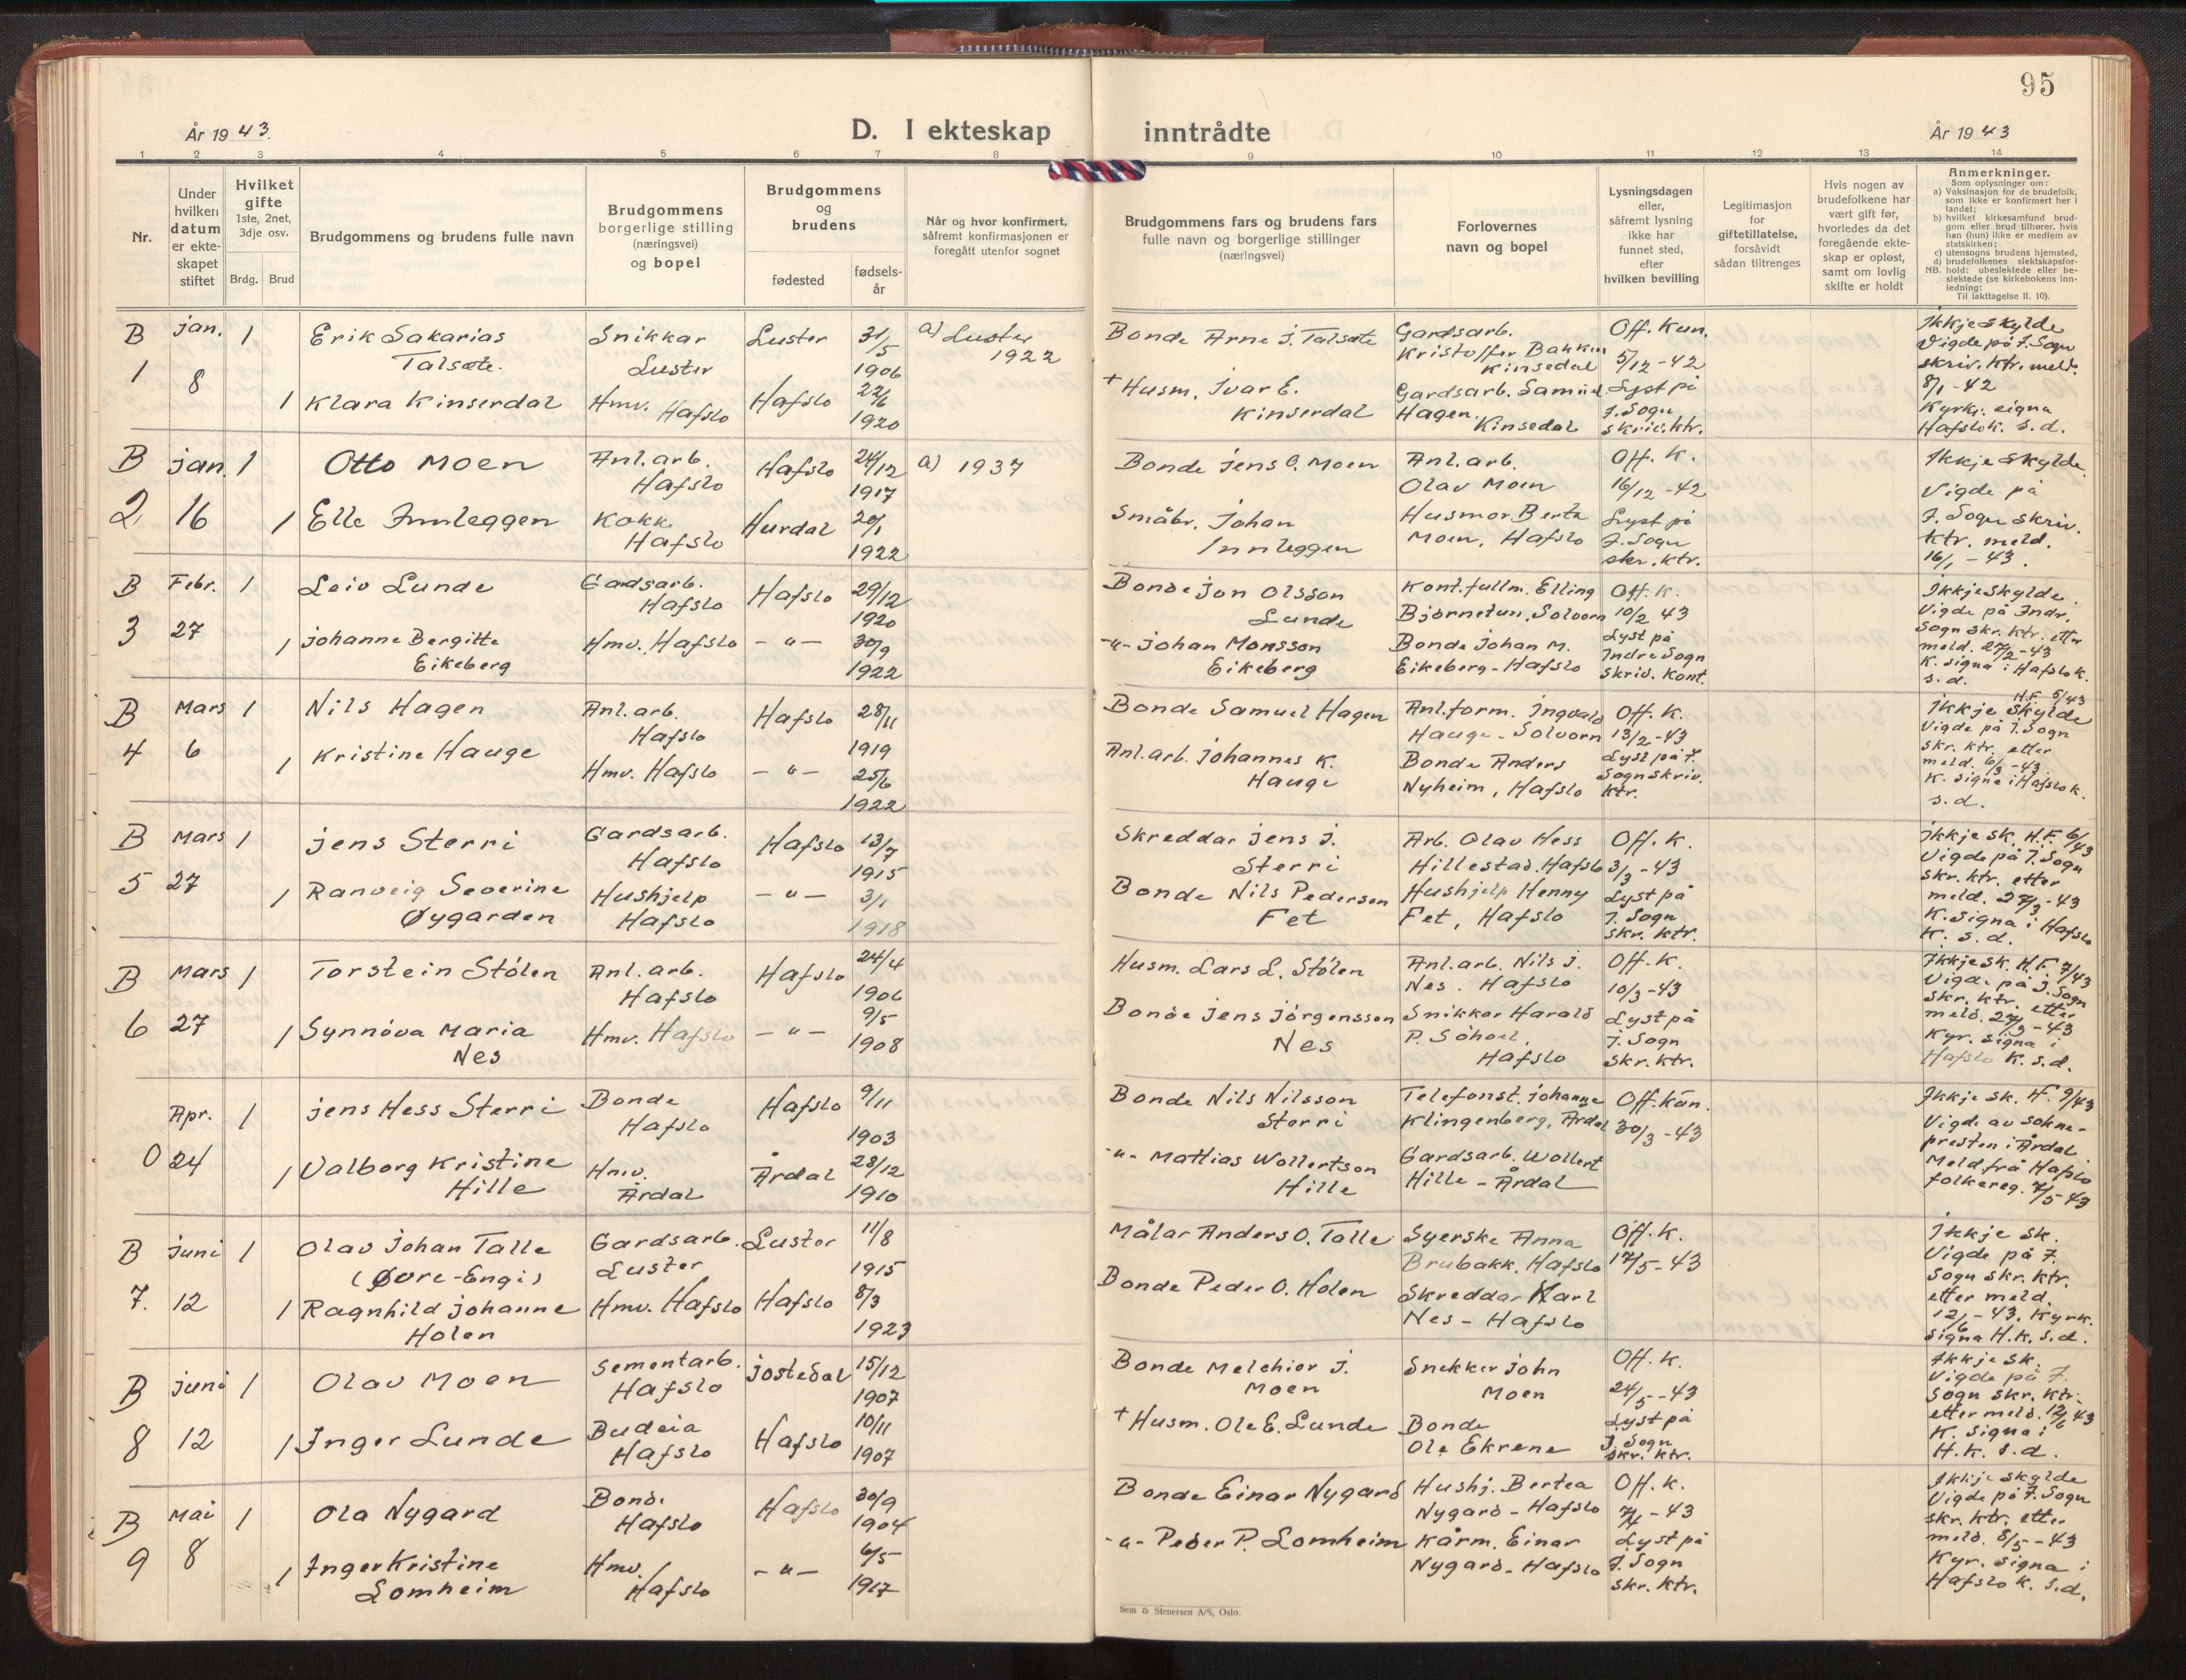 95
År 1943.
D. I ekteskap inntrådte
År 1943
1 2 3 4 5 6 7 8 9 10 11 12 13 14
Nr.
Under
hvilken
datum
er ekte-
skapet
stiftet
Hvilket
gifte
1ste, 2net,
3dje osv.
Brdg. Brud
Brudgommens og brudens fulle navn
Brudgommens
borgerlige stilling
(næringsvei)
og bopel
Brudgommens
og
brudens
fødested
fødsels-
år
Når og hvor konfirmert,
såfremt konfirmasjonen er
foregått utenfor sognet
Brudgommens fars og brudens fars
fulle navn og borgerlige stillinger
(næringsvei)
Forlovernes
navn og bopel
Lysningsdagen
eller,
såfremt lysning
ikke har
funnet sted,
efter
hvilken bevilling
Legitimasjon
for
giftetillatelse,
forsåvidt
sådan tiltrenges
Hvis nogen av
brudefolkene har
vært gift før,
hvorledes da det
foregående ekte-
skap er opløst,
samt om lovlig
skifte er holdt
Anmerkninger.
Som oplysninger om:
a) Vaksinasjon for de brudefolk,
som ikke er konfirmert her i
landet;
b) hvilket kirkesamfund brud-
gom eller brud tilhører, hvis
han (hun) ikke er medlem av
statskirken;
c) utensogns brudens hjemsted,
d) brudefolkenes slektskapsfor-
NB. hold: ubeslektede eller be-
slektede (se kirkebokens inn-
ledning:
Til iakttagelse II. 10).
B
1
Jan.
8
1
Erik Sakarias
Talsæte.
Snikkar
Luster
Luster
31/5
1906
a) Luster
1922
1 Klara Kinserdal
Hmv. Hafslo
Hafslo
22/6
1920
Bonde Arne J. Talsæte
+ Husm. Ivar E.
Kinserdal
Gardsarb.
Kristoffer Bakken
Kinsedal
Gardsarb. Samuel
Hagen,
Kinsedal
Off. Kun.
5/12-42
Lyst på
I. Sogn
skriv. ktr.
Ikkje skylde
Vigde på I. Sogn
skriv. ktr. meld.
8/1-42
Kyrkj. signa
Hafslo k. s.d.
B
2
Jan.
16
1
Otto Moen
Anl. arb.
Hafslo
Hafslo
24/12
1917
a) 1937
1 Elle Innleggen
Kokk
Hafslo
Hurdal
20/1
1922
Bonde Jens O. Moen
Småbr. Johan
Innleggen
Anl. arb.
Olav Moen
Husmor Berta
Moen, Hafslo
Off. K.
16/12-42
Lyst på
I. Sogn
skr. ktr.
Ikkje skylde
Vigde på
I. Sogn skriv.
ktr. meld.
16/1-43.
B
3
Febr.
27
1
Leiv Lunde
Gardsarb.
Hafslo
Hafslo
29/12
1920
1 Johanne Bergitte
Eikeberg
Hmv. Hafslo
-"-
30/9
1922
Bonde Jon Olsson
Lunde
-"- Johan Monsson
Eikeberg
Kont. fullm. Elling
Bjørnetun, Solvorn
Bonde Johan M.
Eikeberg - Hafslo
Off. K.
10/2 43
Lyst på
Indre Sogn
skriv. Kont.
Ikkje skylde.
Vigde på Indr.
Sogn skr. ktr. etter
meld. 27/2-43
K. signa i Hafslo k.
s.d.
B
4
Mars
6
1
Nils Hagen
Anl. arb.
Hafslo
Hafslo
28/11
1919
1 Kristine Hauge
Hmv. Hafslo
-"-
25/6
1922
Bonde Samuel Hagen
Anl. arb. Johannes K.
Hauge
Anl. form. Ingvald
Hauge - Solvorn
Bonde Anders
Nyheim, Hafslo
Off. K.
13/2-43
Lyst på I.
Sogn skriv.
ktr.
H.F. 5/43
Ikkje skylde
Vigde på I. Sogn
skr. ktr. etter
meld. 6/3-43
K. signa i Hafslo k.
s.d.
B
5
Mars
27
1
Jens Sterri
Gardsarb.
Hafslo
Hafslo
13/7
1915
1 Ranveig Severine
Øygarden
Hushjelp
Hafslo
-"-
3/1
1918
Skreddar Jens J.
Sterri
Bonde Nils Pedersen
Fet
Arb. Olav Hess
Hillestad. Hafslo
Hushjelp Henny
Fet, Hafslo
Off. K.
3/3-43
Lyst på
I. Sogn
skr. ktr.
Ikkje sk. H.F. 6/43
Vigde på I. Sogn
skr. ktr. etter
meld. 27/3-43
K. signa i Hafslo
K. s.d.
B
6
Mars
27
1
Torstein Stölen
Anl. arb.
Hafslo
Hafslo
24/4
1906
1 Synnöva Maria
Nes
Hmv. Hafslo
-"-
9/5
1908
Husm. Lars L. Stölen
Bonde Jens Jörgensson
Nes
Anl. arb. Nils J.
Nes. Hafslo
Snikkar Harald
P. Söhoel,
Hafslo
Off. K.
10/3-43
Lyst på
I. Sogn
skr. ktr.
Ikkje sk. H.F. 7/43
Vigde på I. Sogn
skr. ktr. etter
meld. 27/3-43
Kyr. signa i
Hafslo K. s.d.
0
Apr.
24
1
Jens Hess Sterri
Bonde
Hafslo
Hafslo
9/11
1903
1 Valborg Kristine
Hille
Hmv.
Årdal
Årdal
28/12
1910
Bonde Nils Nilsson
Sterri
-"- Mattias Wollertson
Hille
Telefonst. Johanne
Klingenberg, Årdal
Gardsarb. Wollert
Hille - Årdal
Off. Kun.
30/3-43
Ikkje sk. H. 9/43
Vigde av sokne-
presten i Årdal
Meld frå Hafslo
folkereg. 7/5-43
B
7.
Juni
12
1
Olav Johan Talle
(Øvre-Engi)
Gardsarb.
Luster
Luster
11/8
1915
1 Ragnhild Johanne
Holen
Hmv. Hafslo
Hafslo
8/3
1923
Målar Anders O. Talle
Bonde Peder O. Holen
Syerske Anna
Brubakk. Hafslo
Skreddar Karl
Nes - Hafslo
Off. K.
17/5-43
Ikkje sk.
Vigde på I.
Sogn skr. ktr.
etter meld.
12/6-43. Kyrk.
signa H.K. s.d.
B
8
Juni
12
1
Olav Moen
Sementarb.
Hafslo
Jostedal
15/12
1907
1 Inger Lunde
Budeia
Hafslo
Hafslo
10/11
1907
Bonde Melchior J.
Moen
+ Husm. Ole E. Lunde
Snekker John
Moen
Bonde
Ole Ekrene
Off. K.
24/5-43
Lyst på
I. Sogn
skr. ktr.
Ikkje sk.
Vigde på I.
Sogn skr. ktr.
etter meld. 12/6 43
K. signa i
H.K. s.d.
B
9
Mai
8
1
Ola Nygard
Bonde
Hafslo
Hafslo
30/9
1904
1 Inger Kristine
Lomheim
Hmv.
Hafslo
-"-
6/5
1917
Bonde Einar Nygard
-"- Peder P. Lomheim
Hushj. Bertea
Nygard - Hafslo
Kårm. Einar
Nygard - Hafslo
Off. K.
7/4-43
Lyst på
I. Sogn
skr. ktr.
Ikkje skylde
Vigde på I. Sogn
skr. ktr. etter
meld. 8/5-43
Kyr. signa i
Hafslo K. s.d.
Sem & Stenersen A/S, Oslo.